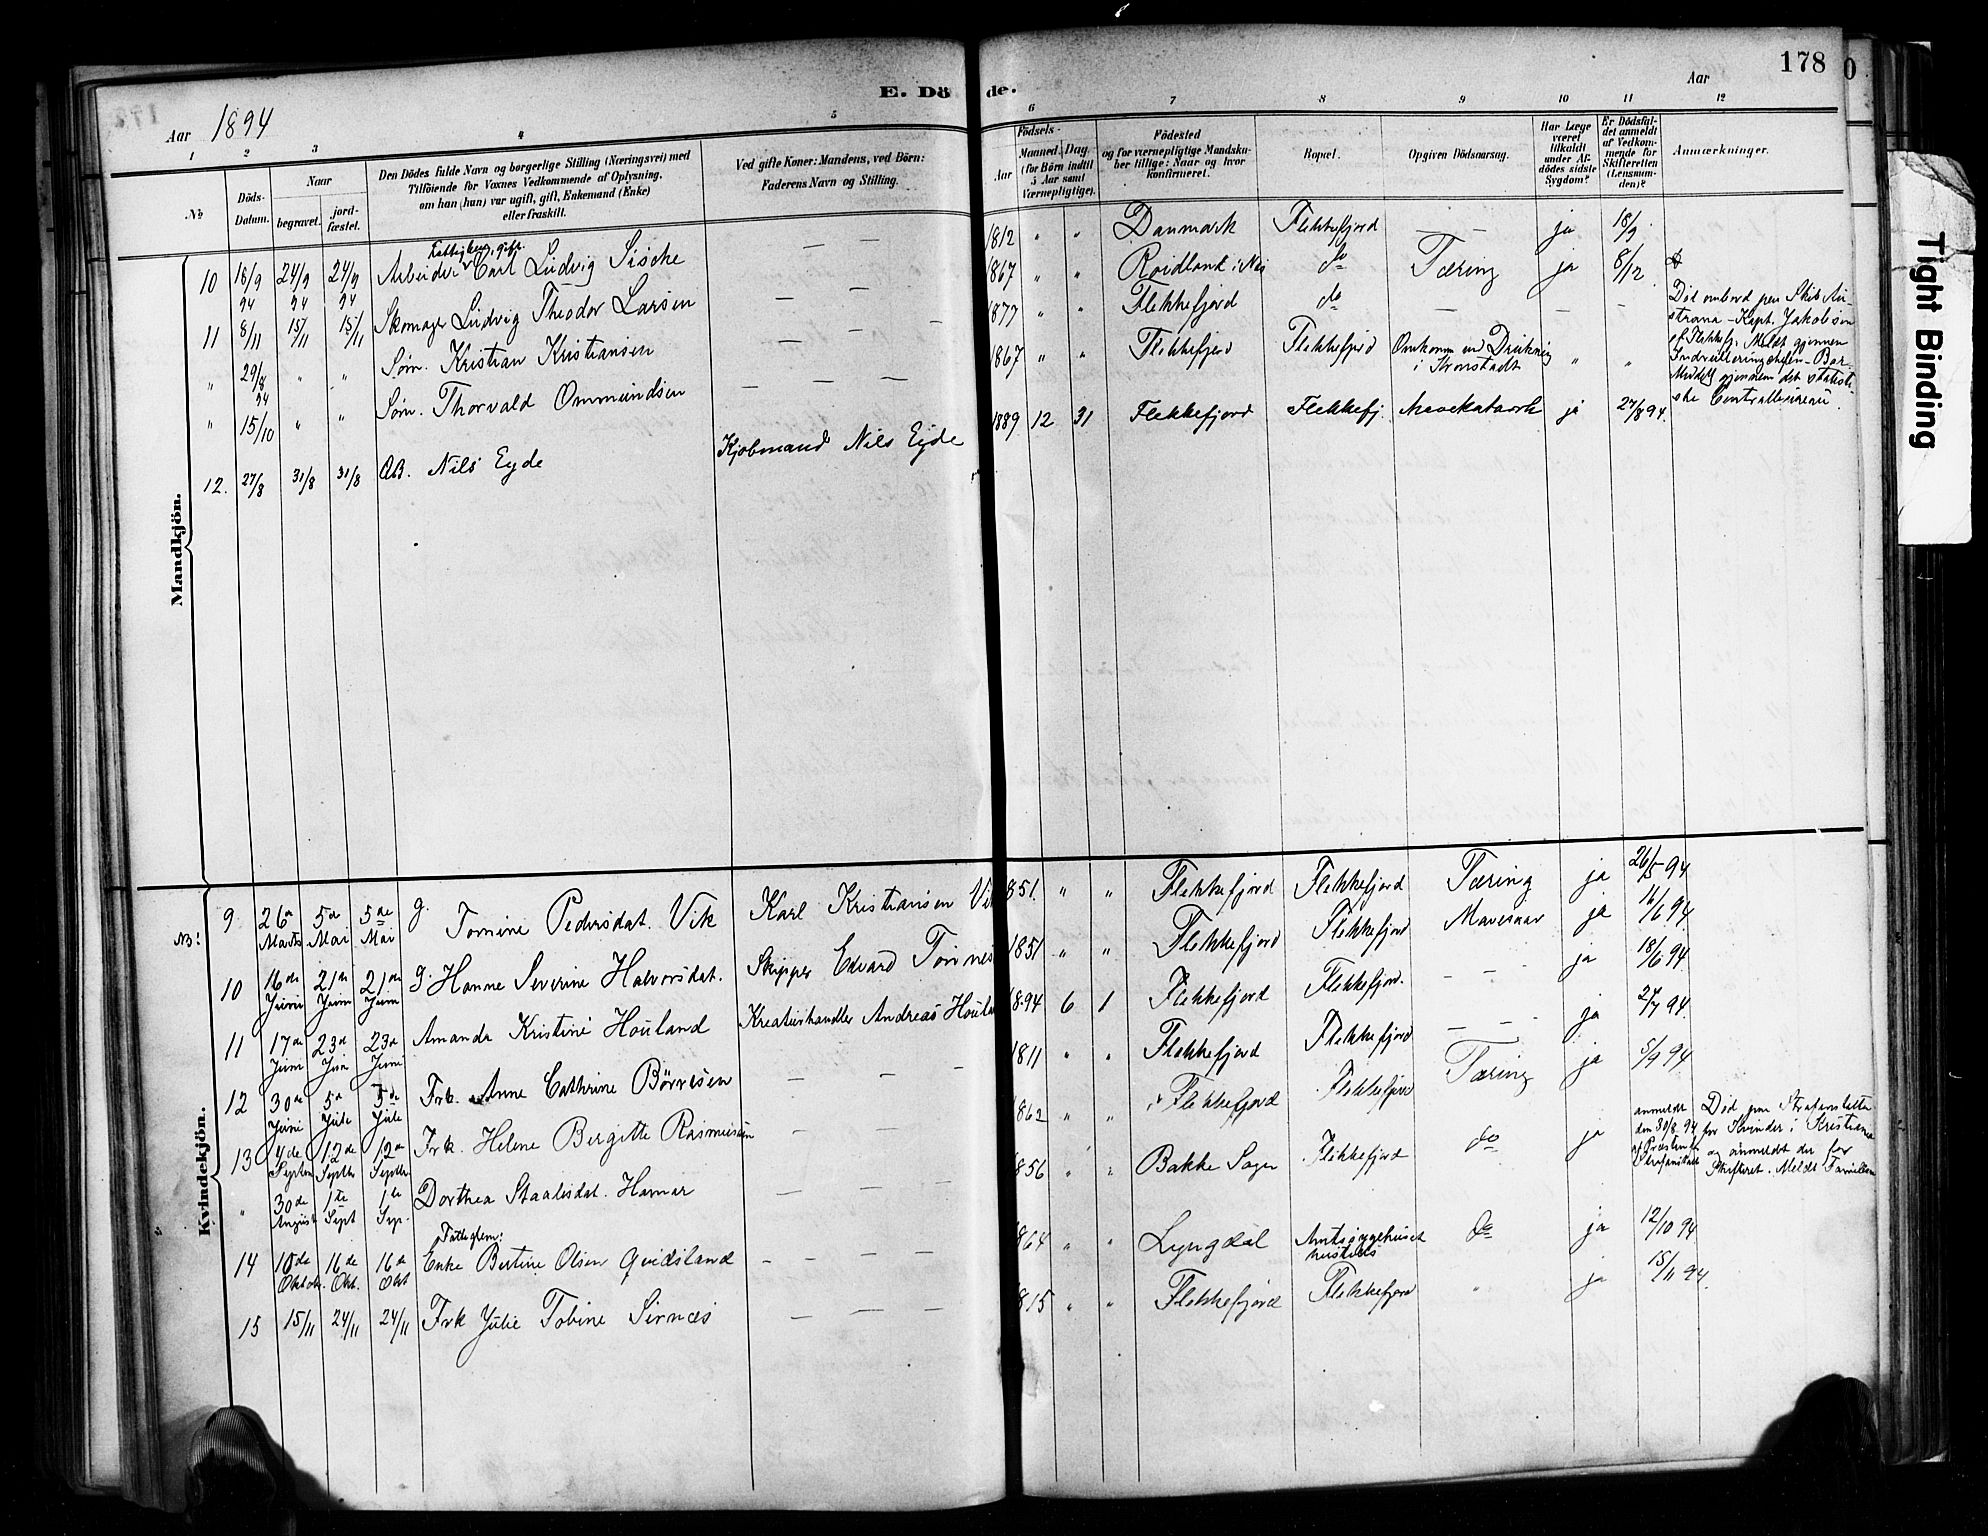 178
E. Döde.
Aar 1894
Aar
1 2 3 4 5 6 7 8 9 10 11 12
No
Döds-Datum.
Naar
begravet.
jord-fæstet.
Den Dödes fulde Navn og borgerlige Stilling (Næringsvei) med
Tilföiende for Voxnes Vedkommende af Oplysning,
om han (hun) var ugift, gift, Enkemand (Enke)
eller fraskilt.
Ved gifte Koner: Mandens, ved Börn:
Faderens Navn og Stilling.
Födsels-
Aar
Maaned. Dag
(for Börn indtil
5 Aar samt
Værnepligtige).
Födested
og for værnepligtige Mandsku-
ber tillige: Naar og hvor
konfirmeret.
Bopæl.
Opgiven Dödsaarsag.
Har Læge
været
tilkaldt
under Af-
dödes sidste
Sygdom?
Er Dödsfal-
det anmeldt
af Vedkom-
mende for
Skifteretten
(Lensman-
den)?
Anmærkninger.
Mandkjön.
10 18/9 94 24/9 94 24/9 94 Arbeider Fattiglem, gift. Carl Ludvig Sische — — 1812 " " Danmark Flekkefjord — — ja 18/9
11 8/11 15/11 15/11 Skomager Ludvig Theodor Larsen — — — 1867 " " Roidland i Nes do Tæring ja 8/12
" 29/8 94 " " Søm. Kristian Kristiansen — — — 1877 " " Flekkefjord do — — —
Död ombord paa Skib
Kapt. Jakobsen
af Flekkefj. Meldt gjennem
" 15/10 " " Søm. Thorvald Ommundsen — — — 1867 " " Flekkefjord Flekkefjord Omkommen ved Drukning i Kronstadt " "
Meddelt gjennem det statisti-
ske Centralbureau.
12. 27/8 31/8 31/8 Nils Eyde Kjøbmand Nils Eyde 1889 12 31 Flekkefjord Flekkefj. Mavekatarrh ja 27/8 94.
Kvindekjön.
NB!
9 26de Marts 5de Mai 5de Mai g. Tomine Pedersdat. Vik Karl Kristiansen Vik 1851. " " Flekkefjord Flekkefjord Tæring ja 26/5 94
10 16de Juni 21de Juni 21de Juni g. Hanne Severine Halvorsdat. Skipper Edvard Tonnes 1851 " " Flekkefjord Flekkefjord Mavesaar ja 16/6 94.
11 17de Juni 23de Juni 23de Juni Amanda Kristine Houland Kreaturhandler Andreas Houland 1894 6 1 Flekkefjord Flekkefjord. — — ja 18/6 94.
12 30de Juni 5de Jule 5de Jule Frk. Anne Cathrine Börresen — — — 1811 " " Flekkefjord Flekkefjord — — ja 2/7 94.
13 4de Septem 12de Septbr 12de Septbr Frk. Helene Bergitte Rasmussen — — 1862 " " Flekkefjord Flekkefjord Tæring ja 5/9 94
" 30de August 1te Sept 1te Sep. Dorthea Staalesdat. Hamar — — — 1856 " " Bakke Sogn Flekkefjord do ja anmeldt den 30/8 94 af Præsten
Död paa Strafanstalten
for Kvinder i Kristiania
og anmeldt der for
Skifteret. Meldt Familien
14 10de Oktobr. 16de Okt. 16de Okt Fattiglem: Enke Bertine Olsen Qvidsland — — — — 1864 " " Lyngdal Amtssygehuset do ja 12/10 94
15 15/11 24/11 24/11 Frk Julie Tobine Sirnæs — — — 1815 " " Flekkefjord Flekkefjord " ja 15/11 94.
Tight Binding